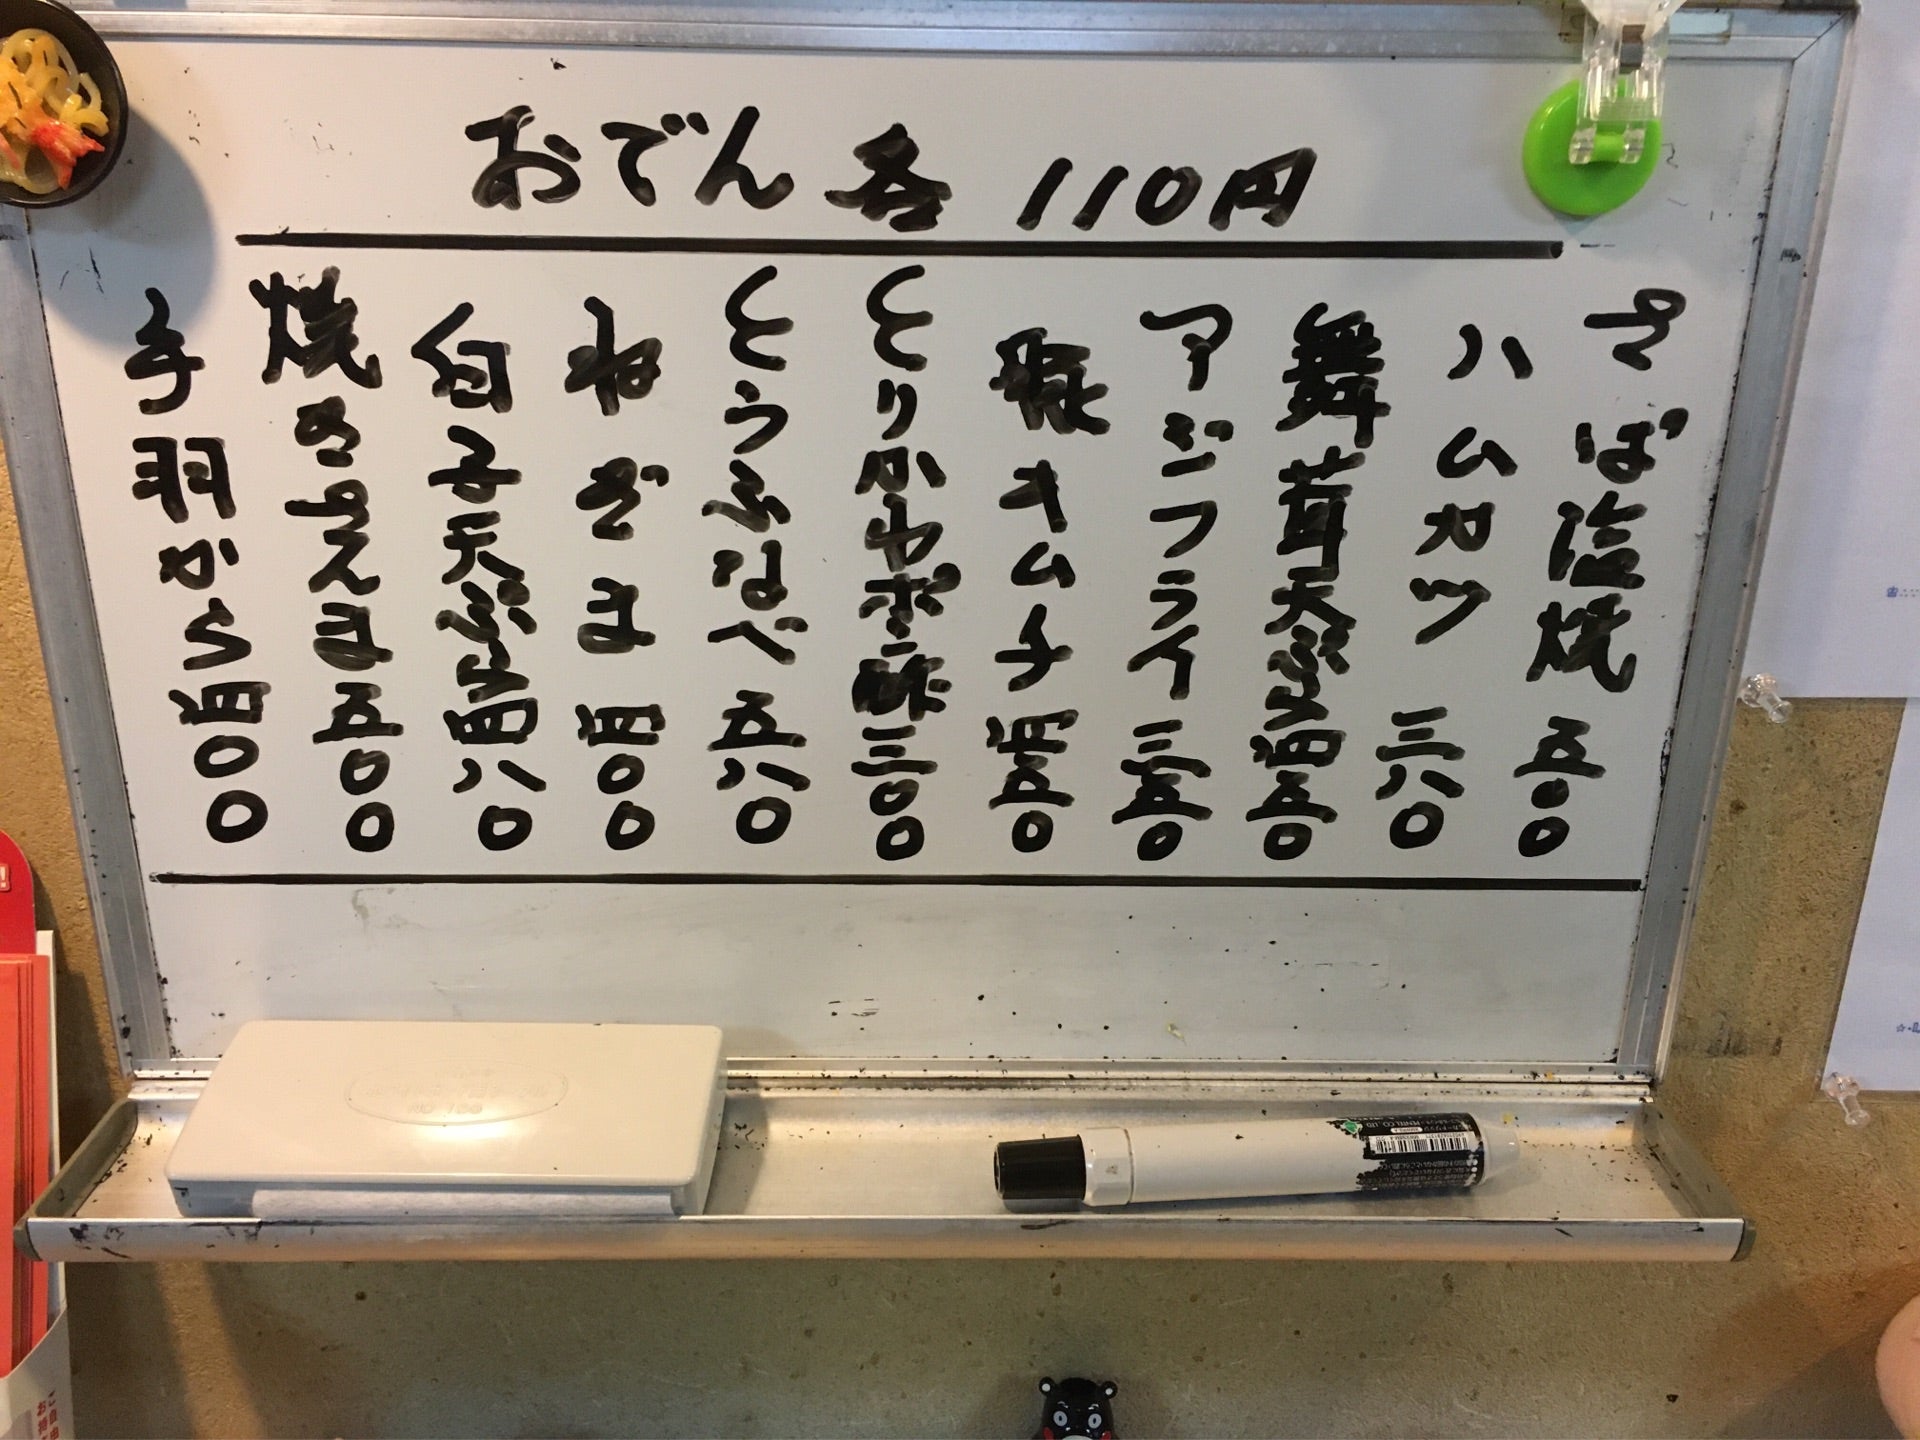 おでん 各 110円
さば塩焼 五〇〇
ハムカツ 三八〇
舞茸天ぷら 四五〇
アジフライ 三五〇
豚キムチ 四五〇
とりかわポン酢 三〇〇
とうふなべ 五八〇
ねぎま 四〇〇
白子天ぷら 四八〇
焼のよえま 五〇〇
手羽から 四〇〇